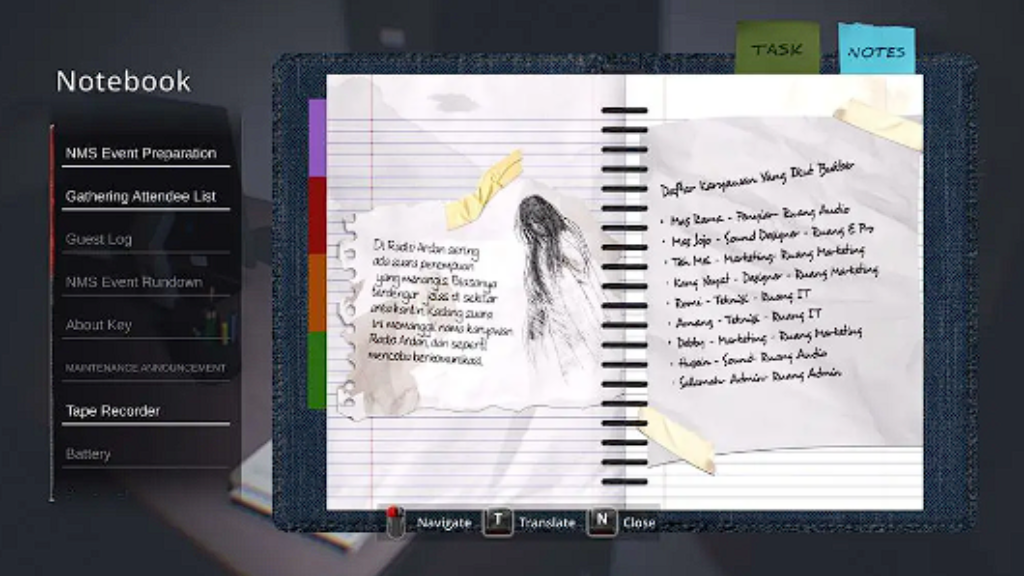 TASK
NOTES
Notebook
NMS Event Preparation
Gathering Attendee List
Guest Log
NMS Event Rundown
About Key
MAINTENANCE ANNOUNCEMENT
Tape Recorder
Battery
Di Radio Ardan sering
ada suara perempuan
yang menangis. Biasanya
terdengar jelas di sekitar
area kantin. Kadang suara
ini memanggil nama karyawan
Radio Ardan, dan seperti
mencoba berkomunikasi.
Daftar Karyawan Yang Ikut Bukber
• Mas Rama - Penyiar - Ruang Audio
• Mas Jojo - Sound Designer - Ruang E Pro
• Teh Mei - Marketing - Ruang Marketing
• Kang Nayat - Designer - Ruang Marketing
• Romi - Teknisi - Ruang IT
• Amang - Teknisi - Ruang IT
• Debby - Marketing - Ruang Marketing
• Husain - Sound - Ruang Audio
• Salamah - Admin - Ruang Admin
Navigate
T
Translate
N
Close